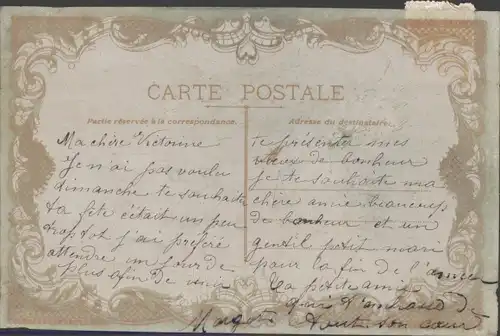 CARTE POSTALE
Partie réservée à la correspondance.
Adresse du destinataire.
Ma chère Victorine
Je n'ai pas voulu
dimanche te souhaiter
ta fête c'était un peu
trop tot j'ai préféré
attendre un jour de
plus afin de venir
te présenter mes
vœux de bonheur
je te souhaite ma
chère amie beaucoup
de bonheur et un
gentil petit mari
pour la fin de l'année
Ta petite amie
qui t'embrasse de
tout son cœur